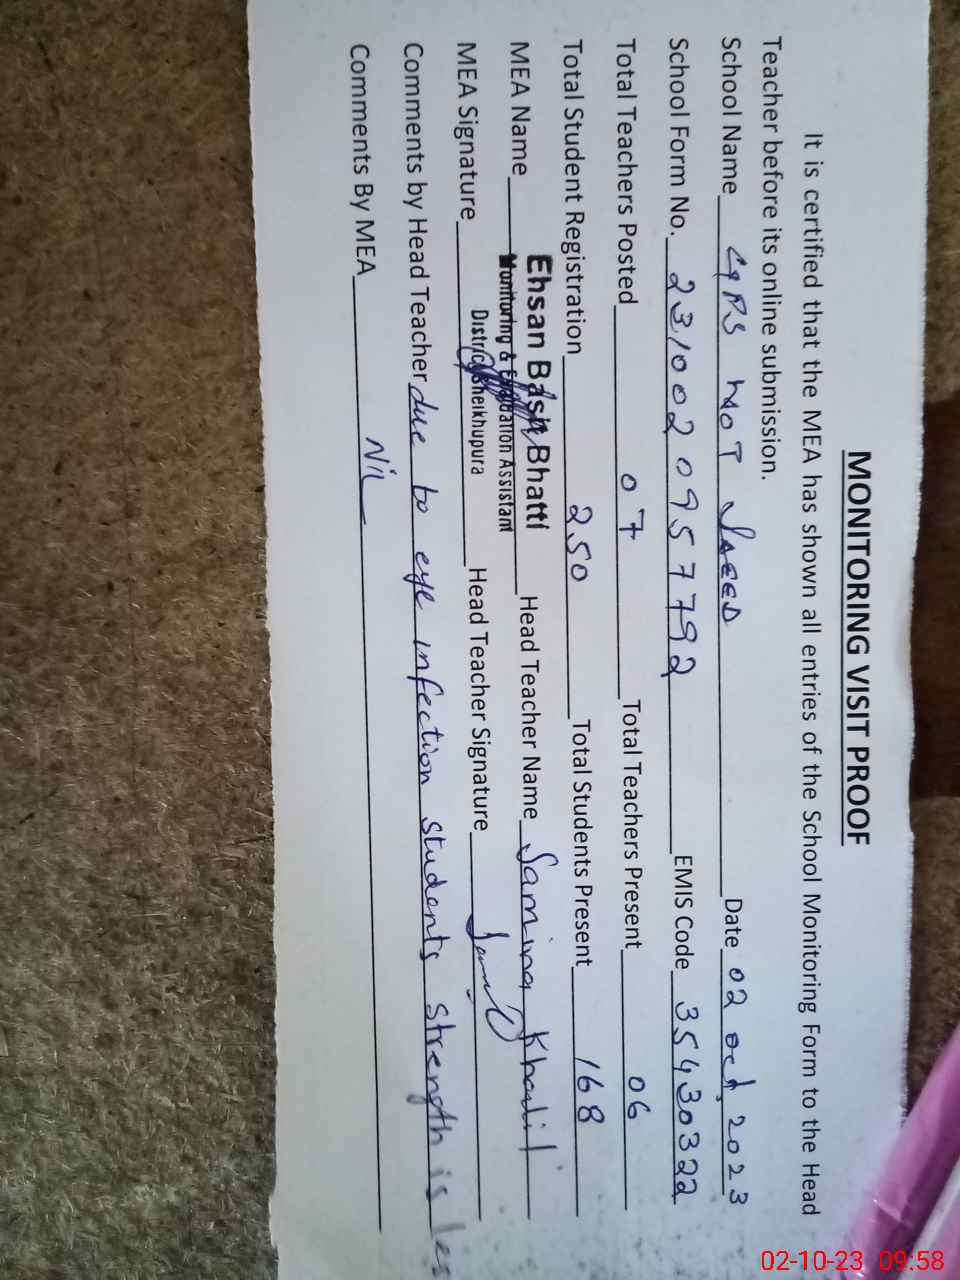 MONITORING VISIT PROOF
It is certified that the MEA has shown all entries of the School Monitoring Form to the Head
Teacher before its online submission.
School Name GPS MOT SAEED Date 02 oct, 2023
School Form No. 2310020957792 EMIS Code 35430322
Total Teachers Posted 07 Total Teachers Present 06
Total Student Registration 250 Total Students Present 168
MEA Name Ehsan Basit Bhatti Head Teacher Name Samina Khadil
Monitoring & Evaluation Assistant
District Sheikhupura
MEA Signature Head Teacher Signature
Comments by Head Teacher due to eye infection students strength is les
Comments By MEA Nil
02-10-23 09:58